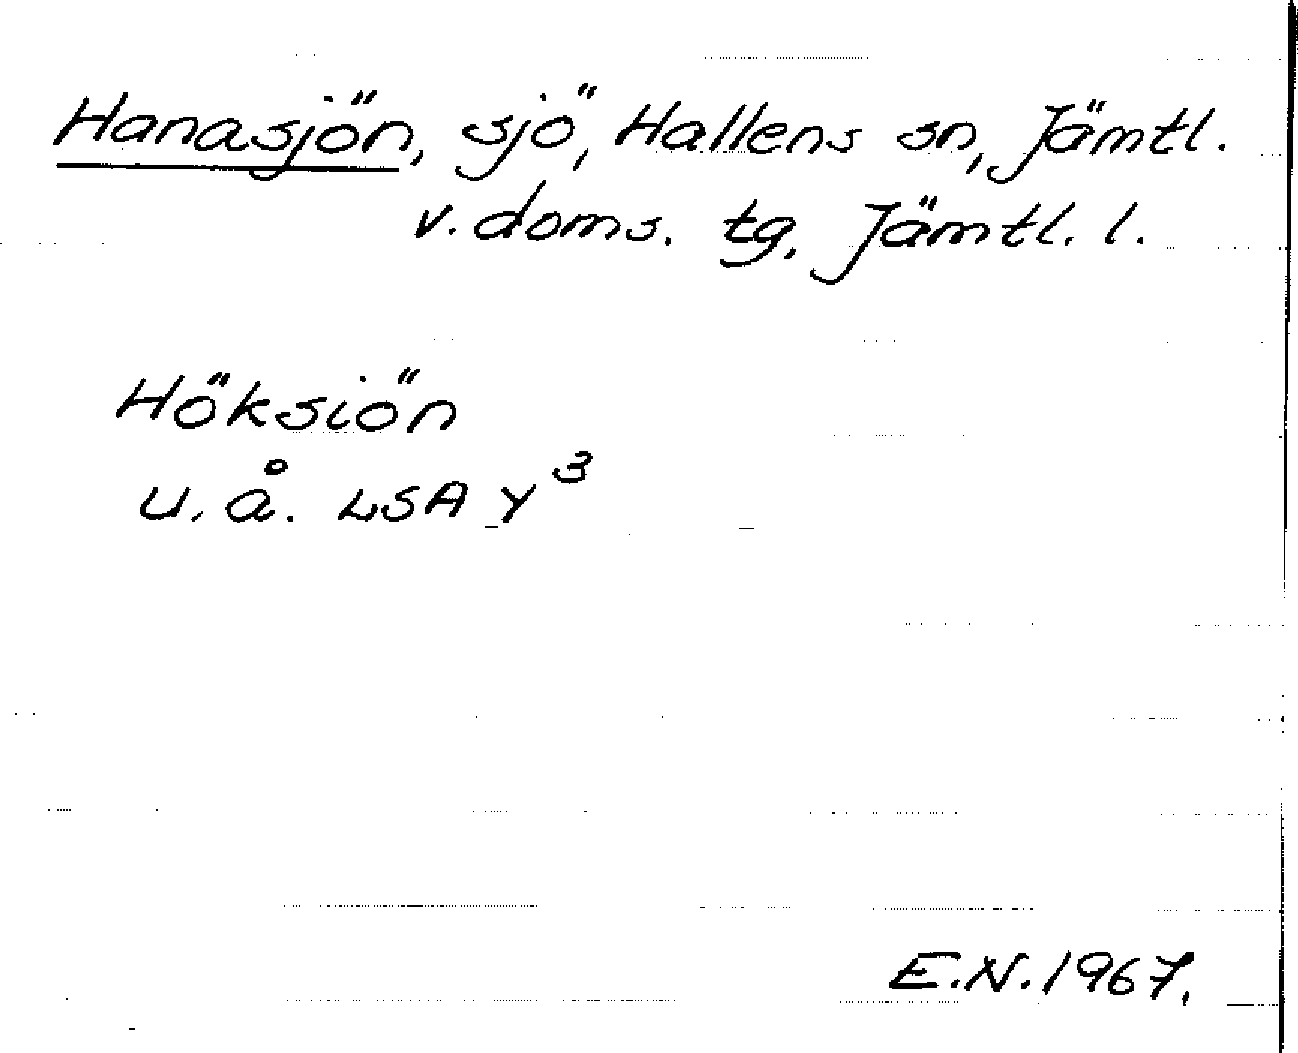 Hanasjön, sjö, Hallens sn, Jämtl.
v. doms. tg, Jämtl. l.
Höksiön
u. å. LSA Y³
E.N. 1967.